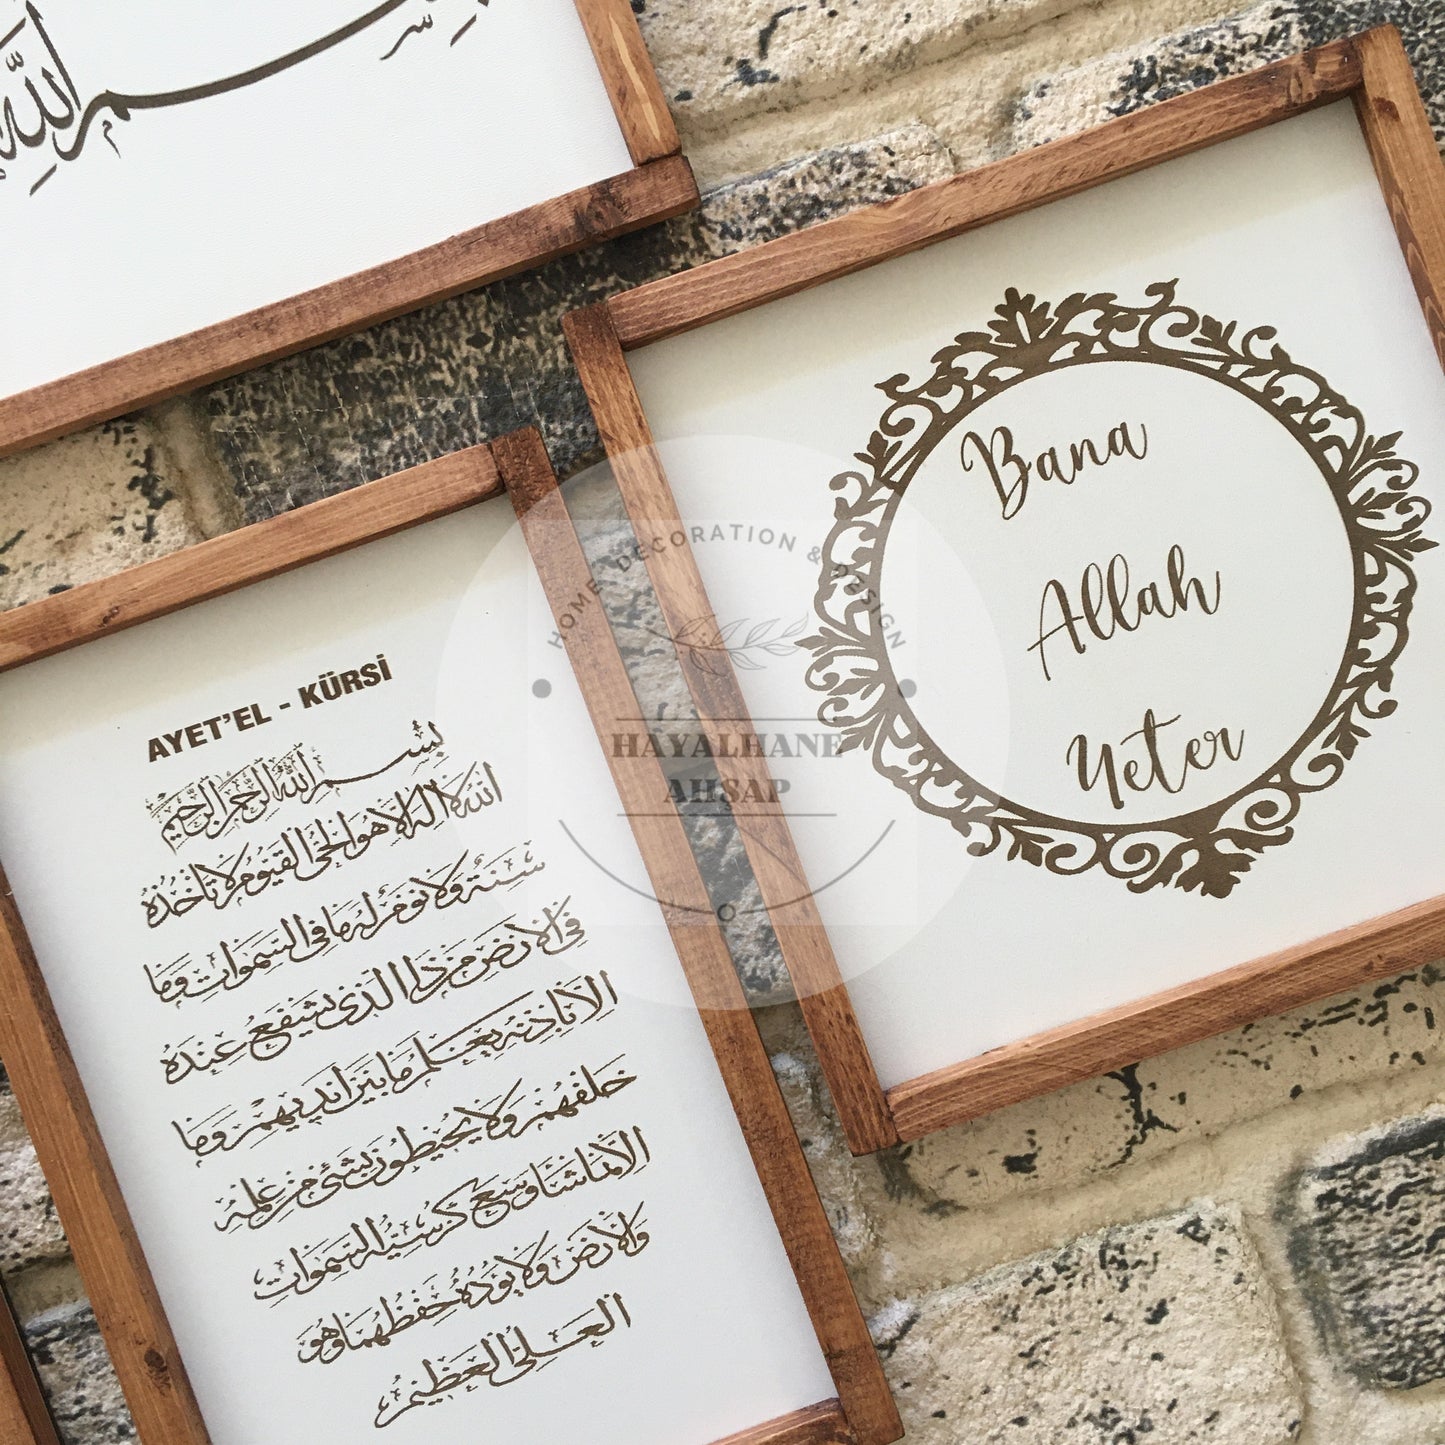 بسم الله
AYET'EL - KÜRSİ
بسم الله الرحمن الرحيم
الله لا اله الا هو الحي القيوم لا تأخذه
سنة ولا نوم له ما في السموات وما
في الارض من ذا الذي يشفع عنده
الا باذنه يعلم ما بين ايديهم وما
خلفهم ولا يحيطون بشئ من علمه
الا بما شاء وسع كرسيه السموات
والارض ولا يؤده حفظهما وهو
العلي العظيم
Bana
Allah
Yeter
HOME DECORATION & DESIGN
HAYALHANE
AHŞAP